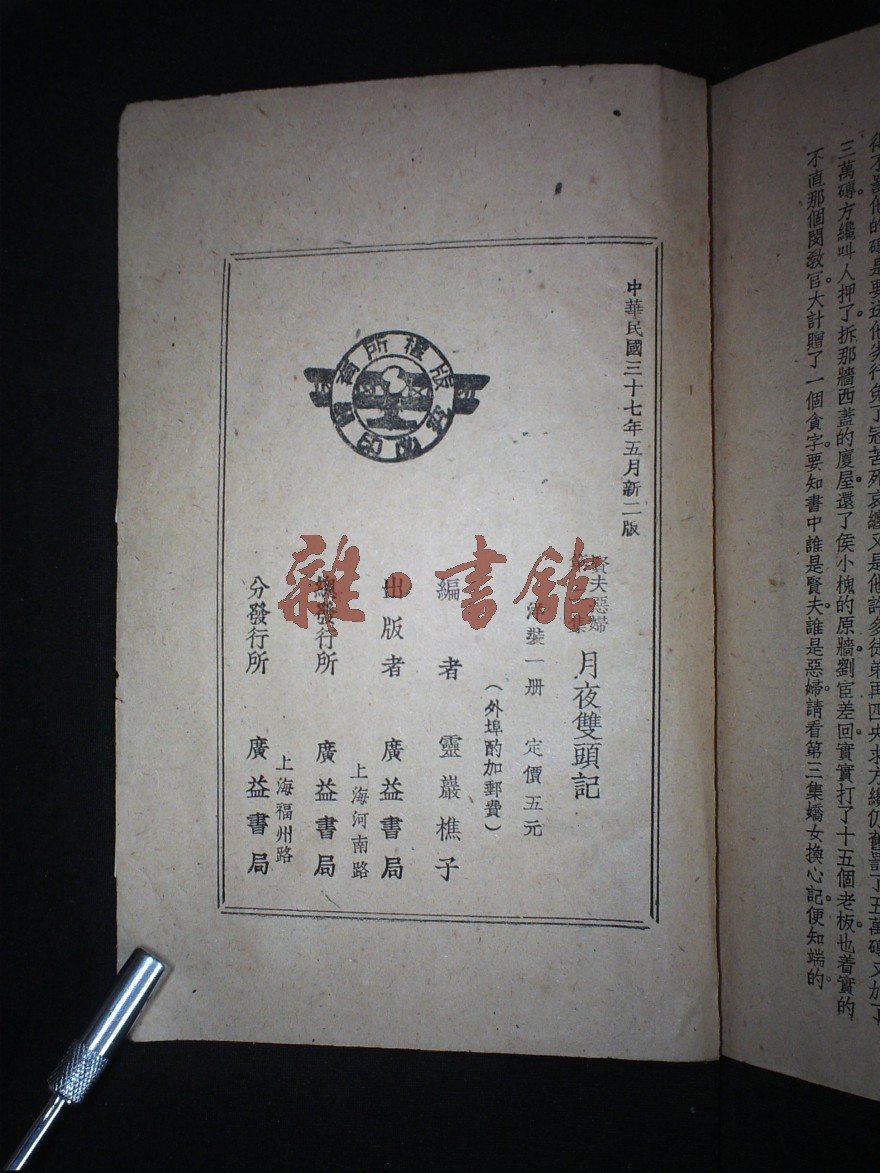 三萬磚方纔叫人押了拆那牆西蓋的廈屋還了侯小槐的原牆劉宦差回實實打了十五個老板也着實的
不直那個閔教官大計贈了一個貪字要知書中誰是賢夫誰是惡婦請看第三集嬌女換心記便知端的
中華民國三十七年五月新二版
賢夫惡婦
月夜雙頭記
裝一册 定價五元
(外埠酌加郵費)
編者 靈巖樵子
出版者 廣益書局
上海河南路
總發行所 廣益書局
上海福州路
分發行所 廣益書局
版權所有
翻印必究
雜·書館